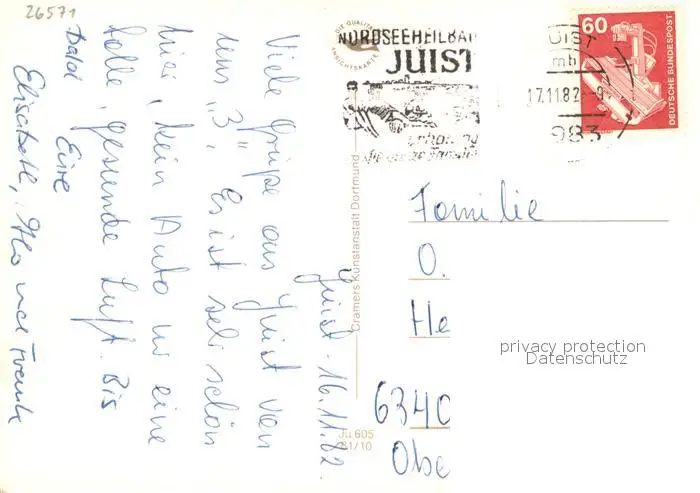 26571
Juist - 16.11.82.
Viele Grüße aus Juist von
uns „3". Es ist sehr schön
hier, kein Auto nur eine
tolle, gesunde Luft. Bis
bald Eure
Elisabeth, und
DIE QUALITÄTS
ANSICHTSKARTE
Cramers Kunstanstalt Dortmund
Ju 605
81/10
NORDSEEHEILBAD
JUIST
17.11.82 - 9
983
60
DEUTSCHE BUNDESPOST
Familie
O.
He
6340
Obe
privacy protection
Datenschutz